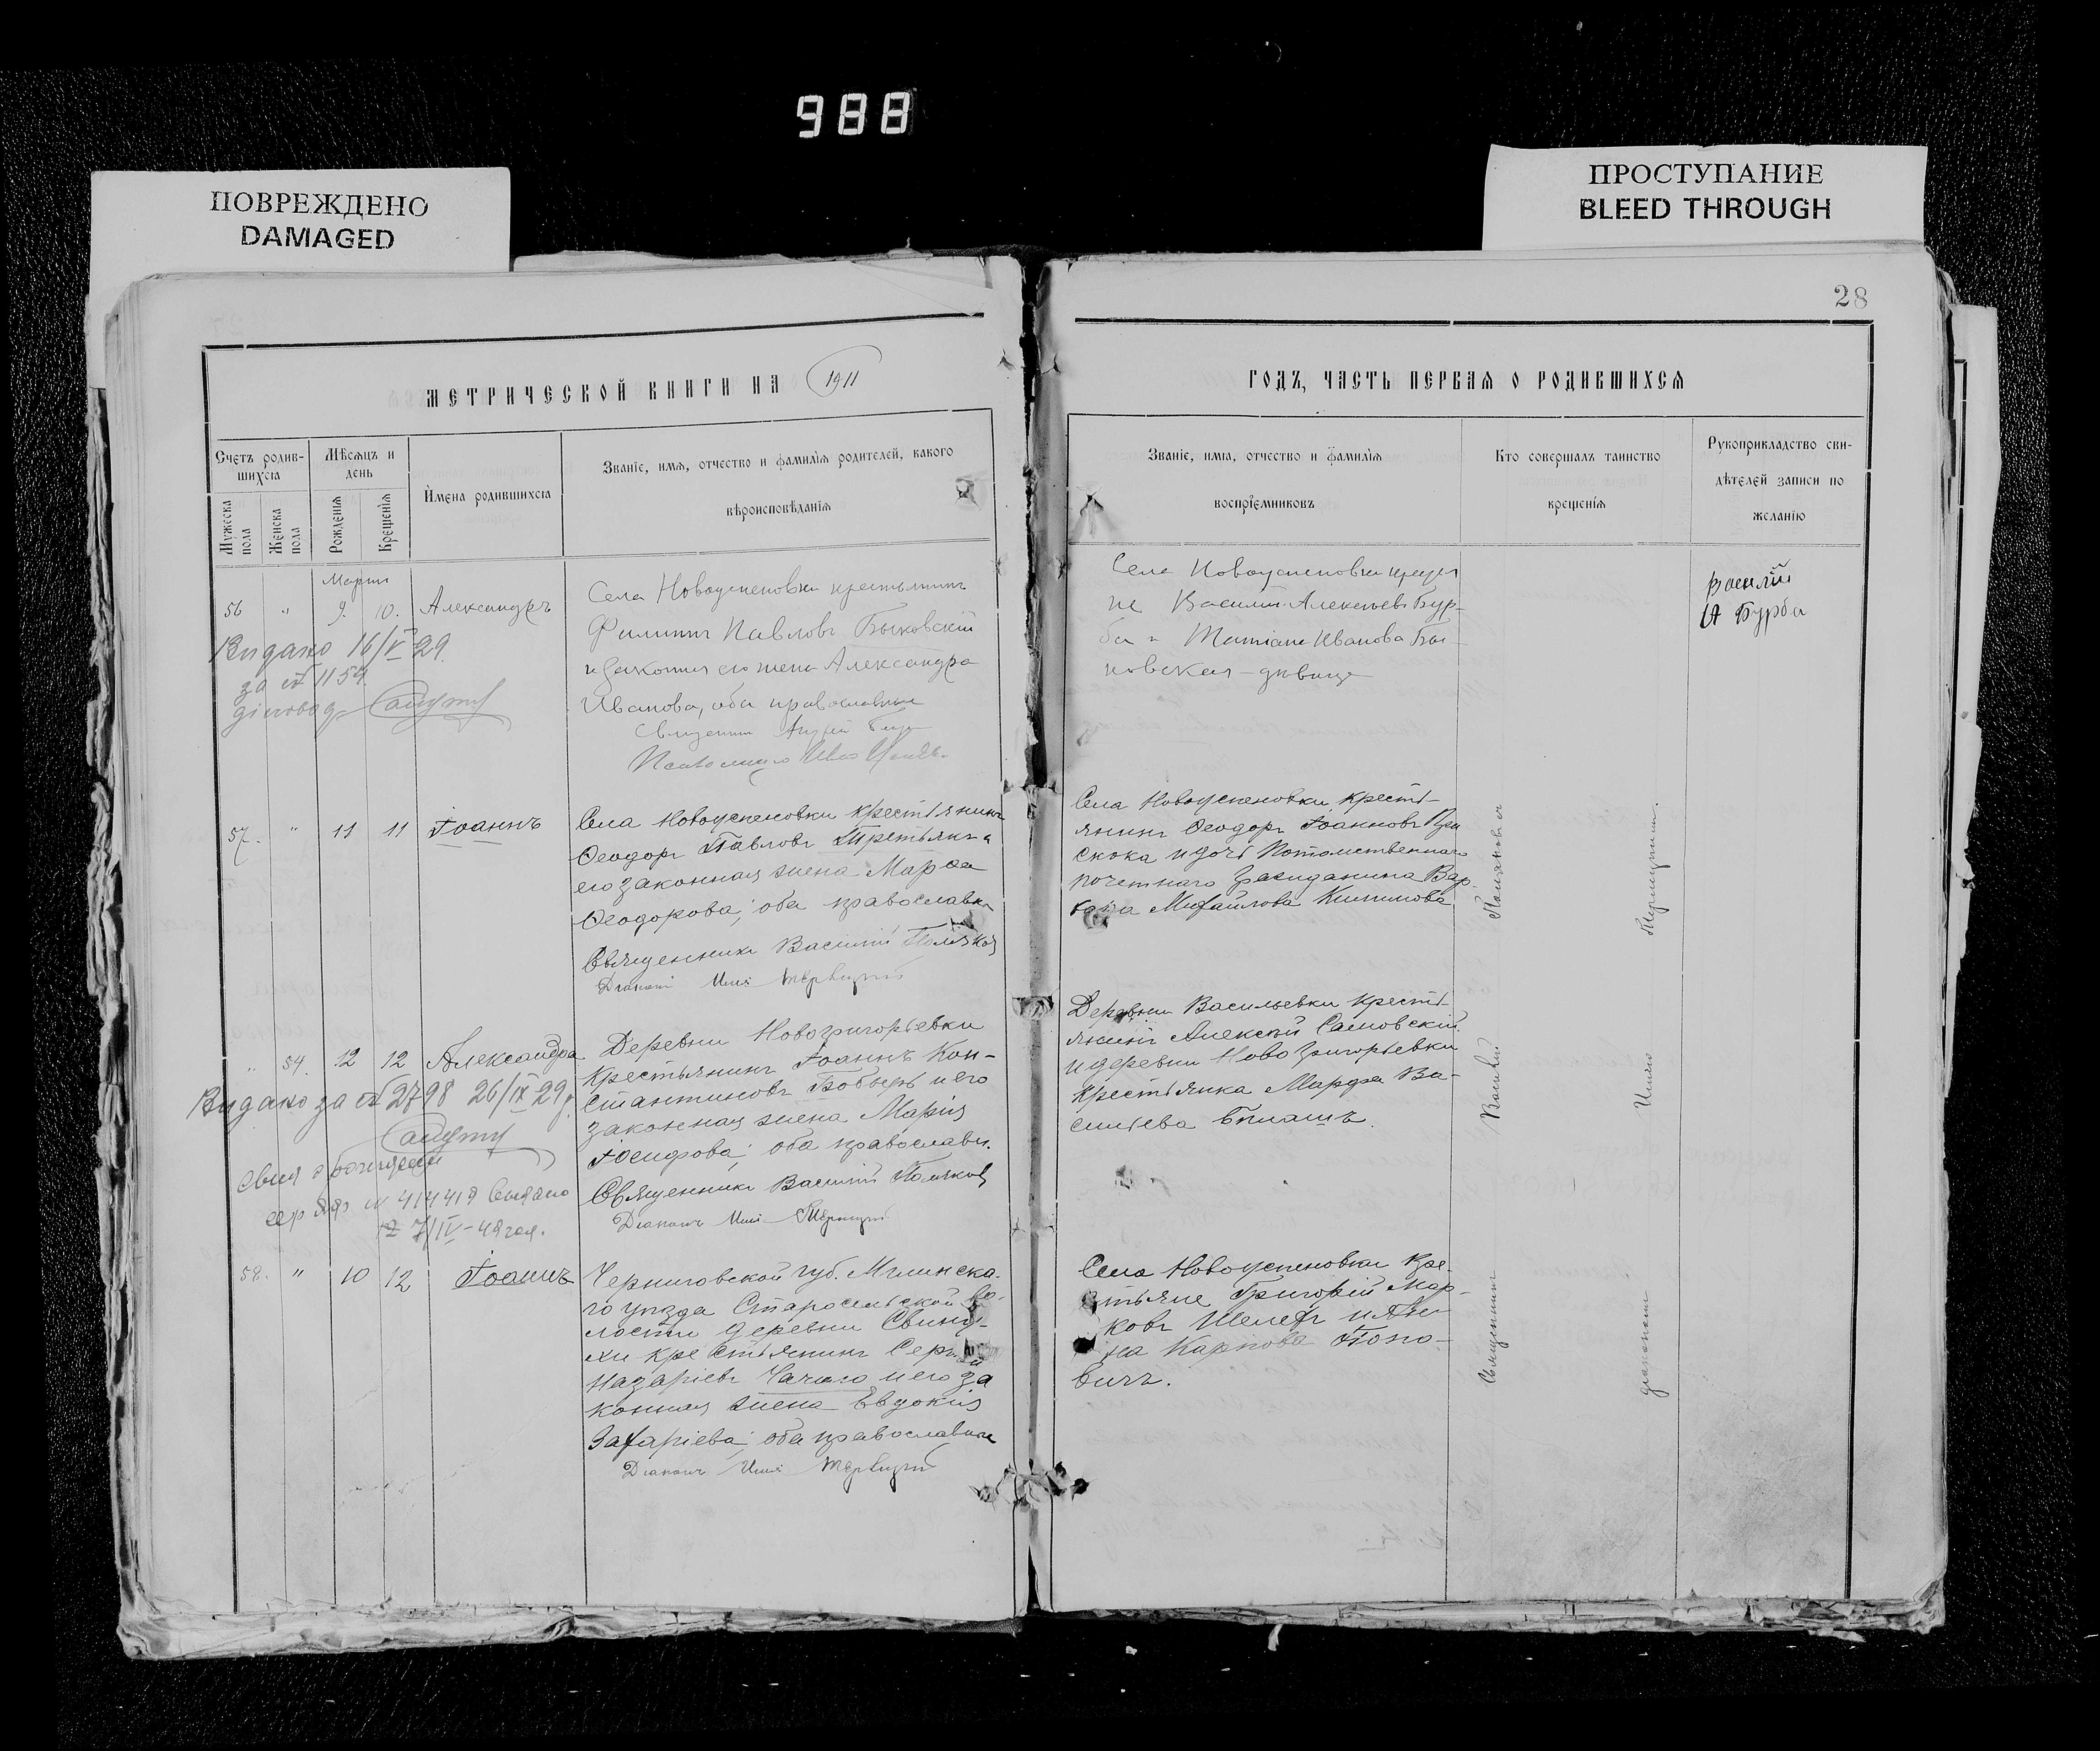 988
ПОВРЕЖДЕНО
DAMAGED
ПРОСТУПАНИЕ
BLEED THROUGH
28
МЕТРИЧЕСКОЙ КНИГИ НА 1911
ГОДЪ, ЧАСТЬ ПЕРВАЯ О РОДИВШИХСЯ
Счетъ родив-
шихся
Мужеска
пола
Женска
пола
Мѣсяцъ и
день
Рожденія
Крещенія
Имена родившихся
Званіе, имя, отчество и фамилія родителей, какого
вѣроисповѣданія
Званіе, имя, отчество и фамилія
воспріемниковъ
Кто совершалъ таинство
крещенія
Рукоприкладство сви-
дѣтелей записи по
желанію
Мартъ
56 " 9. 10. Александръ
Села Новоуспеновки крестьянинъ
Филиппъ Павловъ Быковскій
и законная его жена Александра
Иванова, оба православные
Священникъ Андрей
Села Новоуспеновки крестья
не Василій Алексѣевъ Бур-
ба и Татіана Иванова Бы-
ковская-дѣвица
Василій
А Бурба
Видано 16/V 29.
за № 1159
діловод
57. " 11 11 Іоаннъ
Села Новоуспеновки крестьянинъ
Ѳеодоръ Павловъ Третьякъ и
его законная жена Марѳа
Ѳеодорова; оба православн
Священникъ Василій Поляковъ
Діаконъ Илія
Села Новоуспеновки крестья-
янинъ Ѳеодоръ Іоанновъ
и дочь Потомственнаго
почетнаго гражданина Вар-
вара Михайлова
" 54. 12 12 Александра
Деревни Новогригорьевки
крестьянинъ Іоаннъ Кон-
стантиновъ Бобырь и его
законная жена Марія
Іосифова; оба православн.
Священникъ Василій Поляковъ
Діаконъ Илія
Деревни Васильевки кресть-
янинъ Алексѣй Самовскій
и деревни Новогригорьевки
крестьянка Марфа Ва-
сильева Билашъ.
Видано за № 2798 26/IX 29р.
414419 выдано
7/IV-49 год.
58. " 10 12 Іоаннъ
Черниговской губ. Мглинска-
го уѣзда Старосельской во-
лости деревни
хи крестьянинъ Сергѣй
Назаріевъ Чачило и его за
конная жена Евдокія
Захаріева; оба православные
Діаконъ Илія
Села Новоуспеновки кре-
стьяне Григорій Мар-
ковъ Шелестъ и Ан
на Карпова Попо-
вичъ.
Священникъ Василій Поляковъ
діаконъ Илія